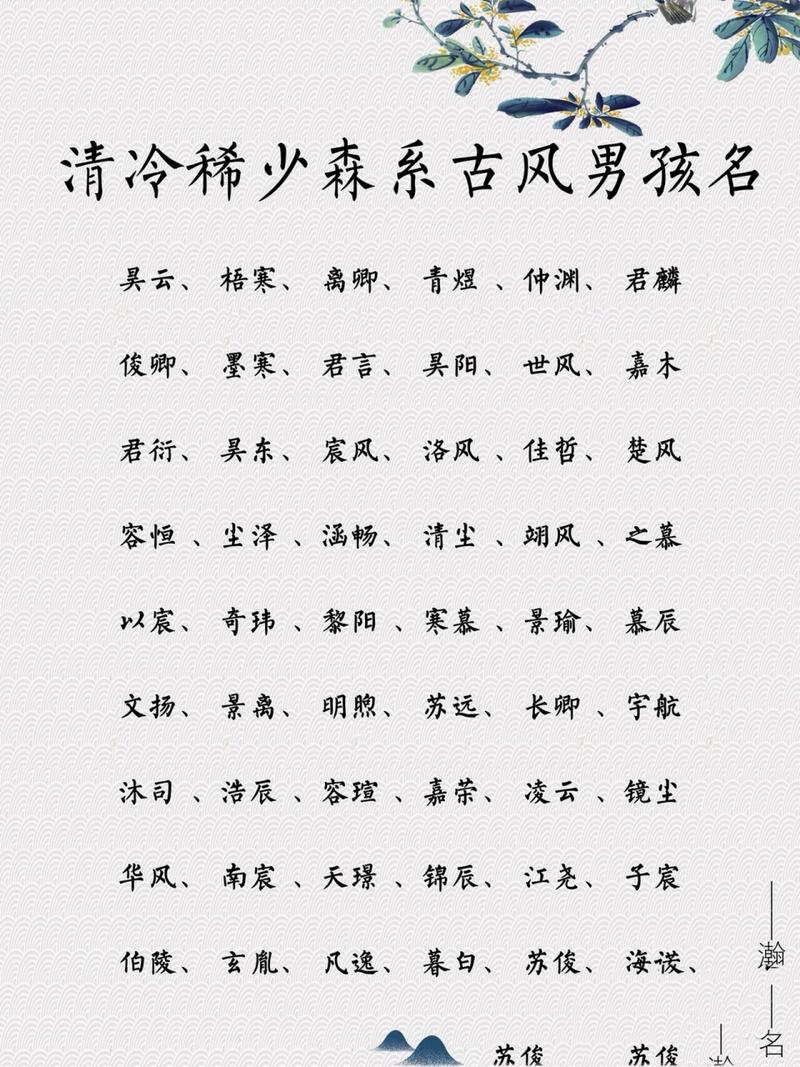 清冷稀少森系古风男孩名
昊云、梧寒、离卿、青煜、仲渊、君麟
俊卿、墨寒、君言、昊阳、世风、嘉木
君衍、昊东、宸风、洛风、佳哲、楚风
容恒、尘泽、涵畅、清尘、翊风、之慕
以宸、奇玮、黎阳、寒慕、景瑜、慕辰
文扬、景离、明煦、苏远、长卿、宇航
沐司、浩辰、容瑄、嘉荣、凌云、镜尘
华风、南宸、天璟、锦辰、江尧、子宸
伯陵、玄胤、凡逸、暮白、苏俊、海诺、
苏俊 苏俊
瀚
名